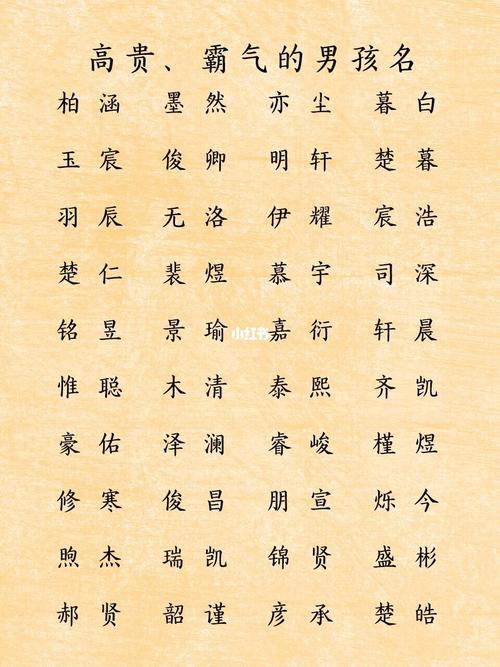 高贵、霸气的男孩名
柏涵 墨然 亦尘 暮白
玉宸 俊卿 明轩 楚暮
羽辰 无洛 伊耀 宸浩
楚仁 裴煜 慕宇 司深
铭昱 景瑜 嘉衍 轩晨
小红书
惟聪 木清 泰熙 齐凯
豪佑 泽澜 睿峻 槿煜
修寒 俊昌 朋宣 烁今
煦杰 瑞凯 锦贤 盛彬
郝贤 韶谨 彦承 楚皓